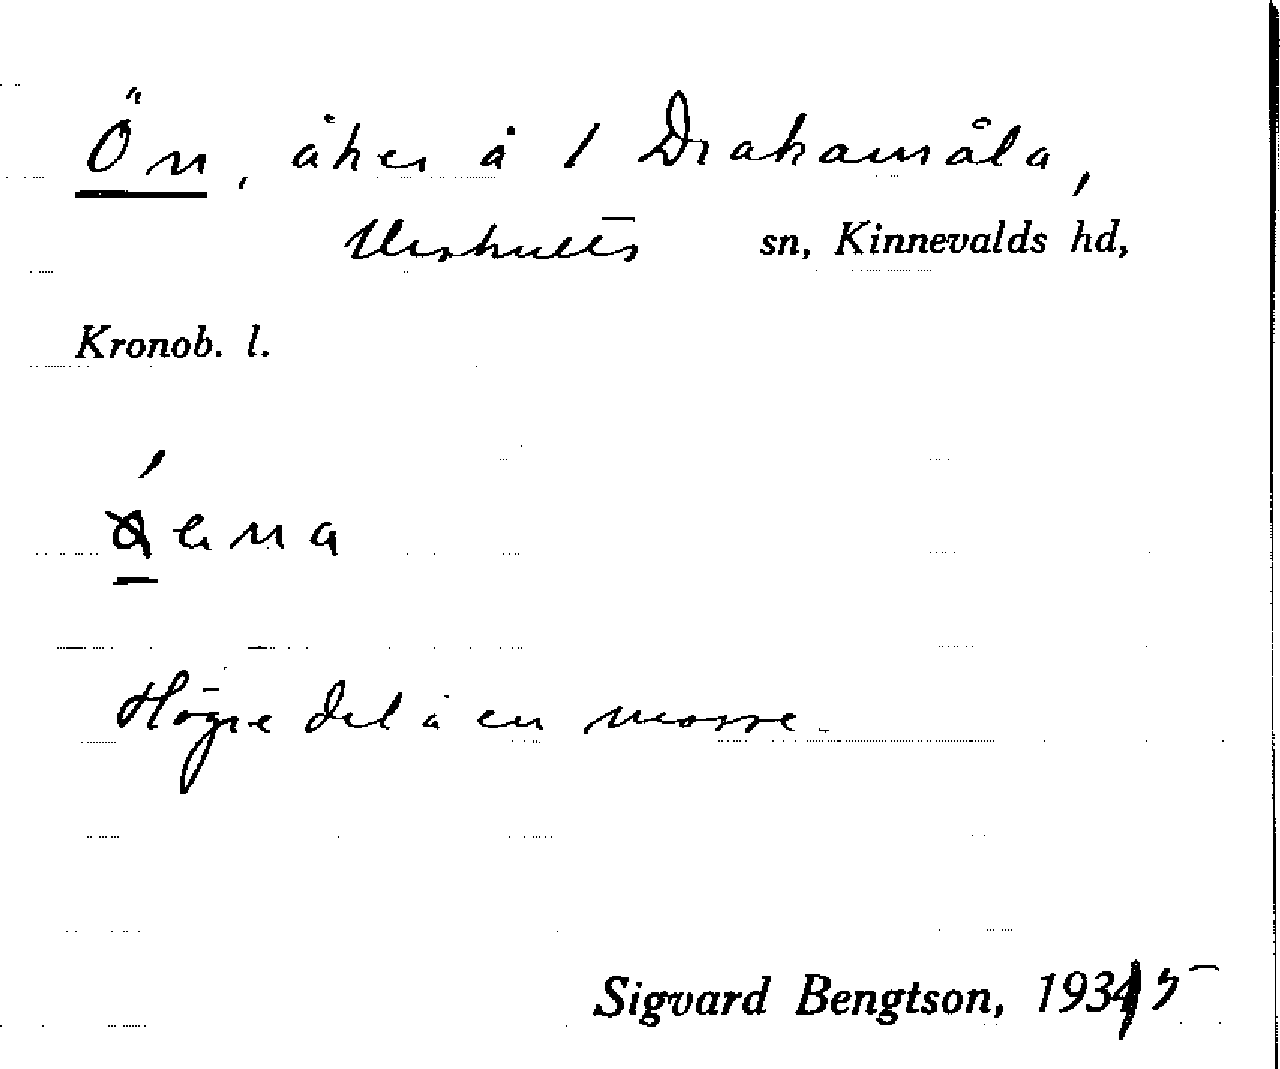 Ön, åker å 1 Drakamåla,
Urshults sn, Kinnevalds hd,
Kronob. l.
Högre del å en mosse.
Sigvard Bengtson, 1935